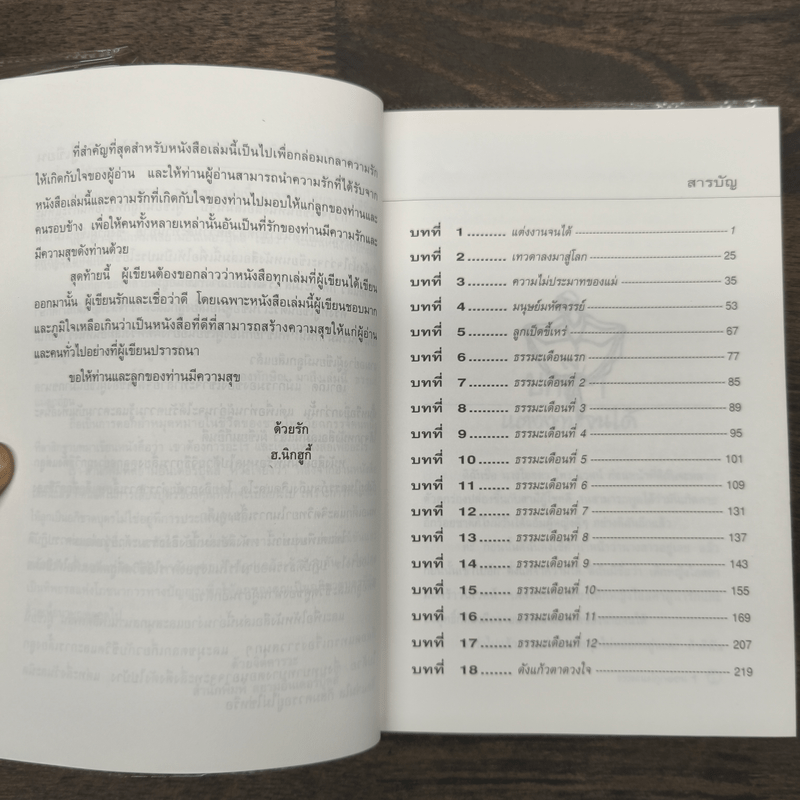 ที่สำคัญที่สุดสำหรับหนังสือเล่มนี้เป็นไปเพื่อกล่อมเกลาความรัก
ให้เกิดกับใจของผู้อ่าน และให้ท่านผู้อ่านสามารถนำความรักที่ได้รับจาก
หนังสือเล่มนี้และความรักที่เกิดกับใจของท่านไปมอบให้แก่ลูกของท่านและ
คนรอบข้าง เพื่อให้คนทั้งหลายเหล่านั้นอันเป็นที่รักของท่านมีความรักและ
มีความสุขดังท่านด้วย
สุดท้ายนี้ ผู้เขียนต้องขอกล่าวว่าหนังสือทุกเล่มที่ผู้เขียนได้เขียน
ออกมานั้น ผู้เขียนรักและเชื่อว่าดี โดยเฉพาะหนังสือเล่มนี้ผู้เขียนชอบมาก
และภูมิใจเหลือเกินว่าเป็นหนังสือที่ดีที่สามารถสร้างความสุขให้แก่ผู้อ่าน
และคนทั่วไปอย่างที่ผู้เขียนปรารถนา
ขอให้ท่านและลูกของท่านมีความสุข
ด้วยรัก
ฮ.นิกฮูกี้
สารบัญ
บทที่ 1 ......... แต่งงานจนได้ 1
บทที่ 2 ......... เทวดาลงมาสู่โลก 25
บทที่ 3 ......... ความไม่ประมาทของแม่ 35
บทที่ 4 ......... มนุษย์มหัศจรรย์ 53
บทที่ 5 ......... ลูกเป็ดขี้เหร่ 67
บทที่ 6 ......... ธรรมะเดือนแรก 77
บทที่ 7 ......... ธรรมะเดือนที่ 2 85
บทที่ 8 ......... ธรรมะเดือนที่ 3 89
บทที่ 9 ......... ธรรมะเดือนที่ 4 95
บทที่ 10 ....... ธรรมะเดือนที่ 5 101
บทที่ 11 ....... ธรรมะเดือนที่ 6 109
บทที่ 12 ....... ธรรมะเดือนที่ 7 131
บทที่ 13 ....... ธรรมะเดือนที่ 8 137
บทที่ 14 ....... ธรรมะเดือนที่ 9 143
บทที่ 15 ....... ธรรมะเดือนที่ 10 155
บทที่ 16 ....... ธรรมะเดือนที่ 11 169
บทที่ 17 ....... ธรรมะเดือนที่ 12 207
บทที่ 18 ....... ดังแก้วตาดวงใจ 219